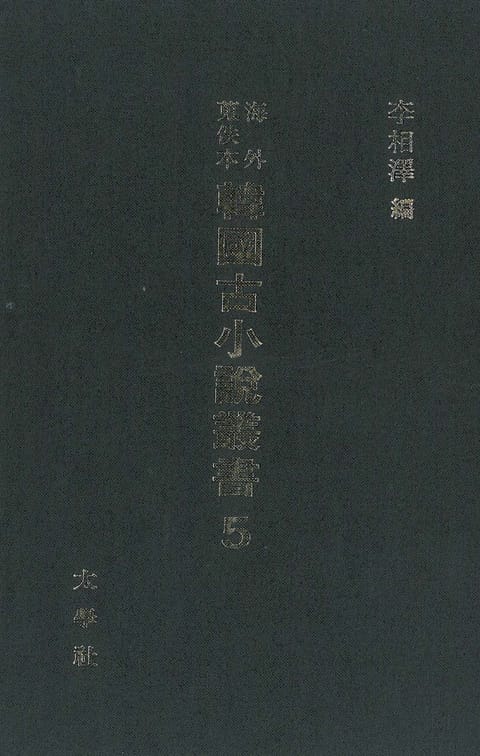 李相澤 編
海外
蒐佚本
韓國古小說叢書 5
太學社